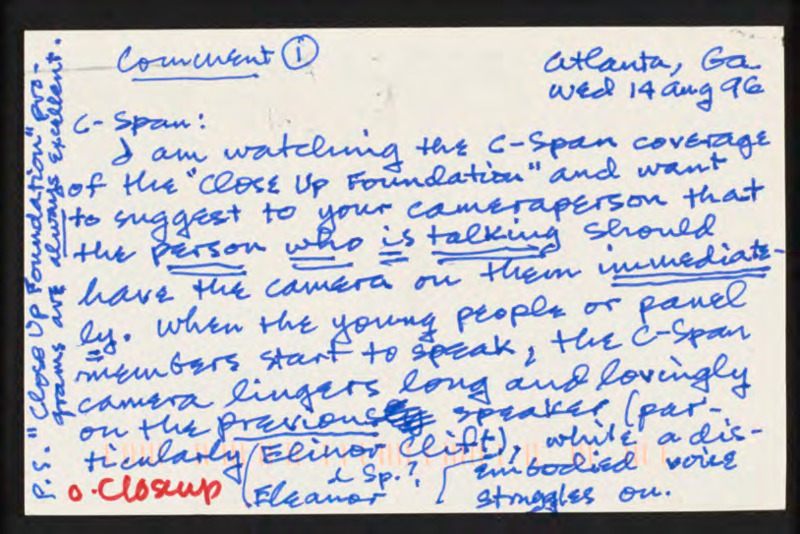 Comment ①
Atlanta, Ga.
Wed 14 Aug 96
C-Span:
I am watching the C-Span coverage
of the "Close Up Foundation" and want
to suggest to your cameraperson that
the person who is talking should
have the camera on them immediate-
ly. When the young people or panel
members start to speak, the C-Span
camera lingers long and lovingly
on the previous speaker (par-
ticularly (Elinor Clift), while a dis-
Eleanor
Sp.?
embodied voice
struggles on.
O.Closeup
P.S. "Close Up Foundation" pro-
grams are always excellent.